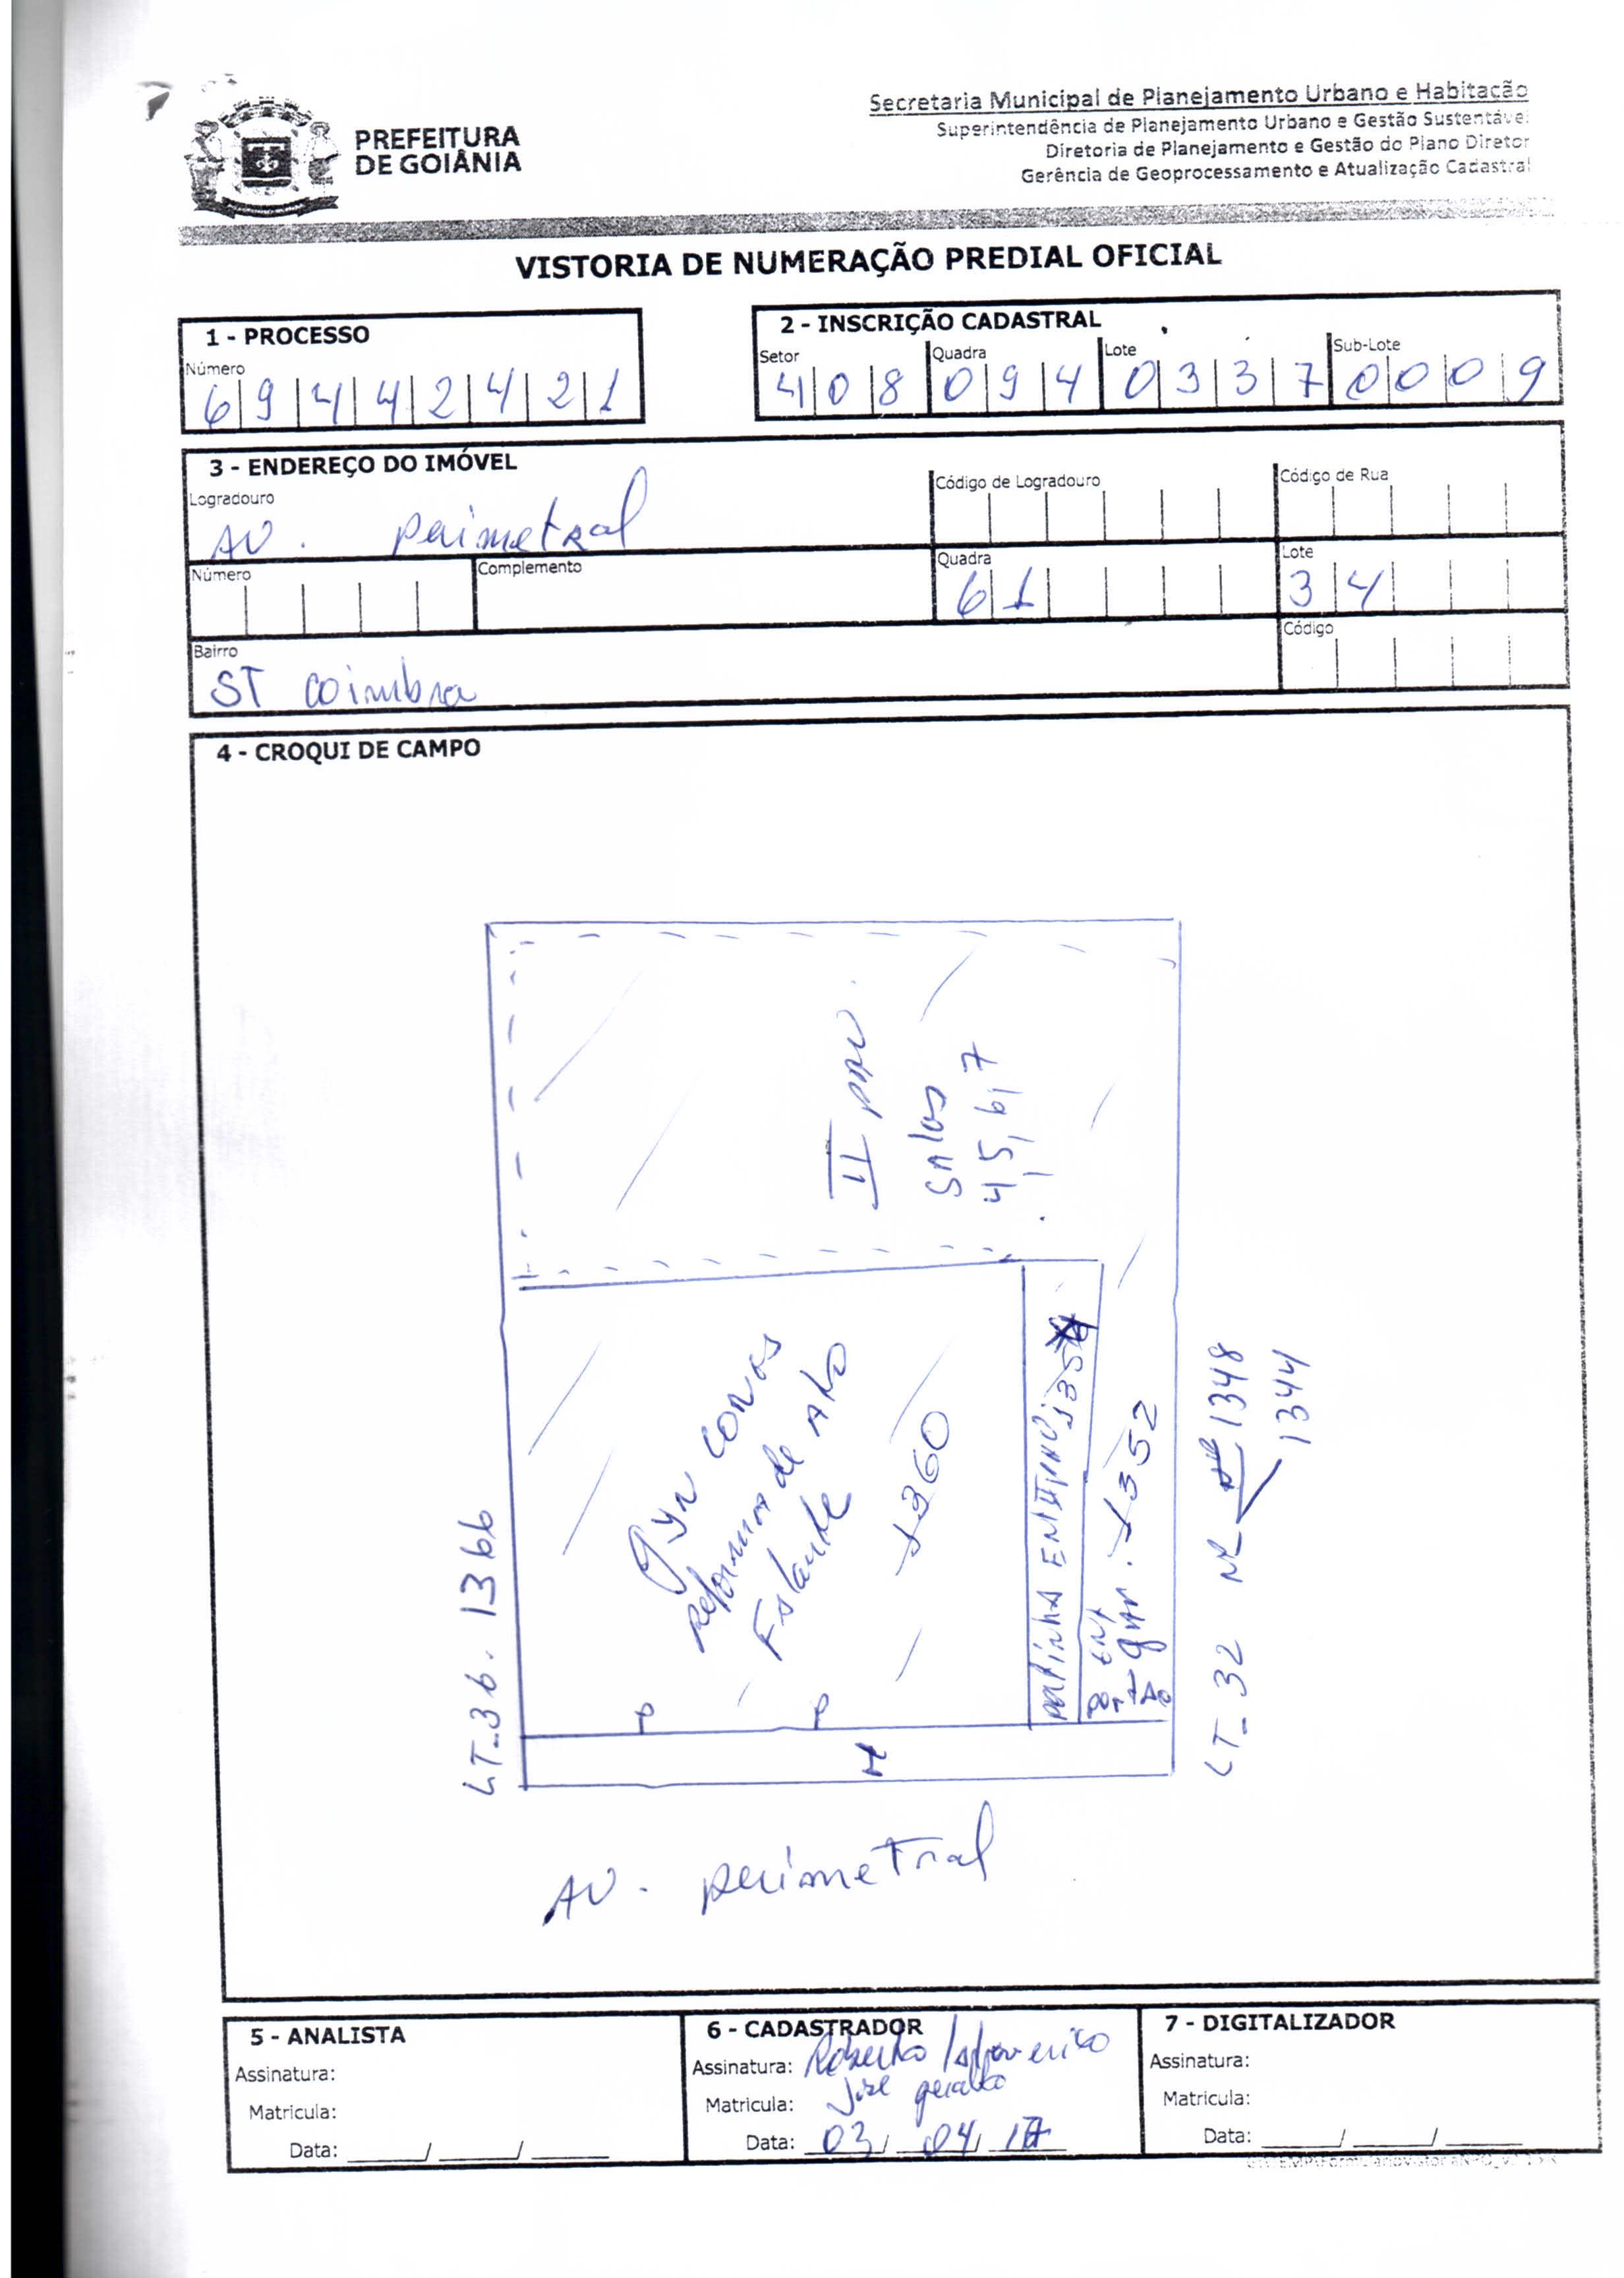 PREFEITURA
DE GOIÂNIA
Secretaria Municipal de Planejamento Urbano e Habitação
Superintendência de Planejamento Urbano e Gestão Sustentável
Diretoria de Planejamento e Gestão do Plano Diretor
Gerência de Geoprocessamento e Atualização Cadastral
VISTORIA DE NUMERAÇÃO PREDIAL OFICIAL
1 - PROCESSO
Número
69442421
2 - INSCRIÇÃO CADASTRAL
Setor Quadra Lote Sub-Lote
408 094 0337 0009
3 - ENDEREÇO DO IMÓVEL
Logradouro
AV. perimetral
Código de Logradouro
Código de Rua
Número
Complemento
Quadra
61
Lote
34
Bairro
ST coimbra
Código
4 - CROQUI DE CAMPO
II pav.
Salas
4, 5, 6, 7
Gyn
reforma de
Estande
1360
1352
LT-36. 1366
LT-32 Nº 1348
1344
AV. perimetral
5 - ANALISTA
Assinatura:
Matricula:
Data: ____/____/____
6 - CADASTRADOR
Assinatura: Roberto
Matricula: José geraldo
Data: 03/04/17
7 - DIGITALIZADOR
Assinatura:
Matricula:
Data: ____/____/____